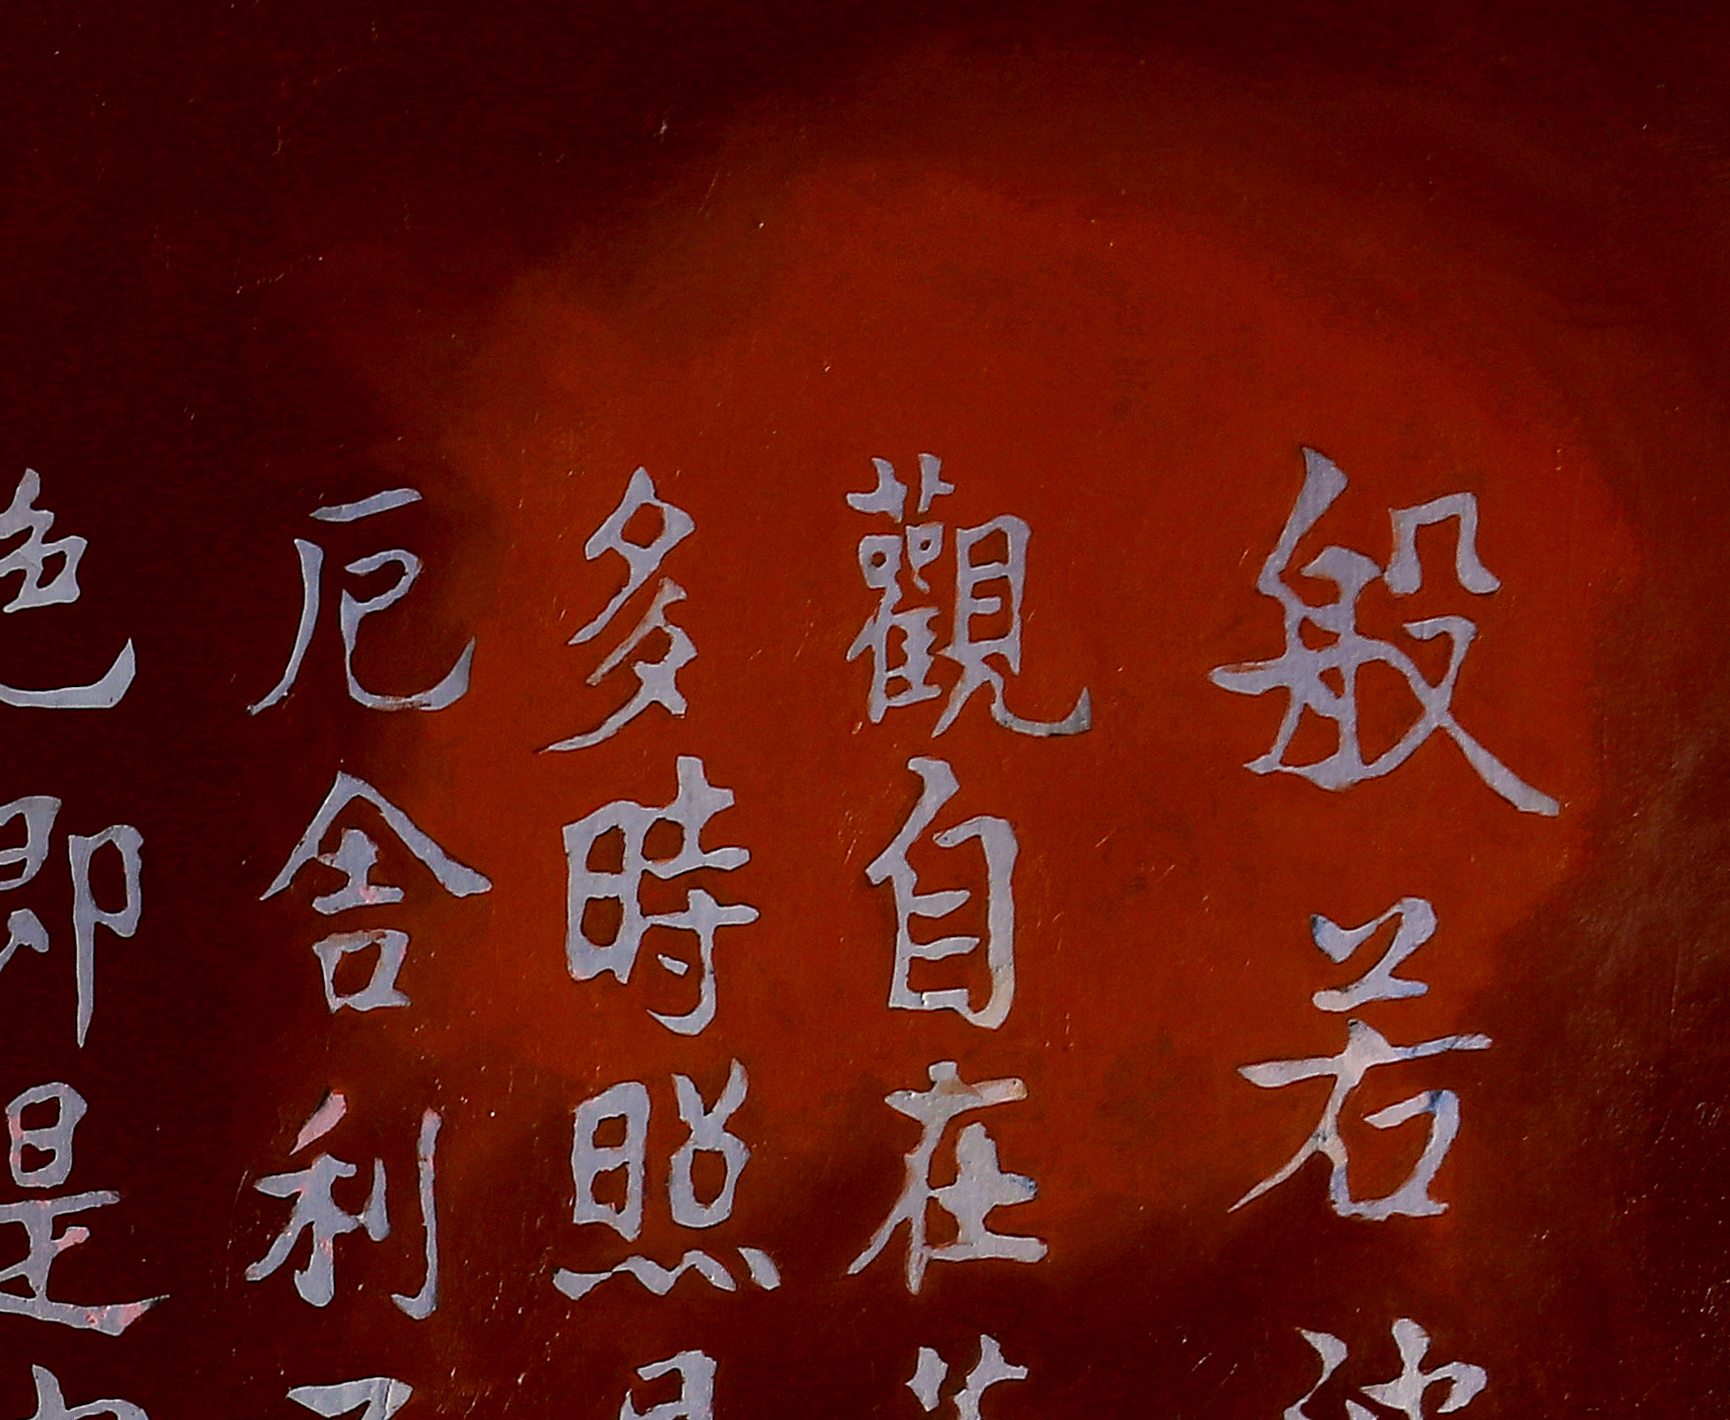 般若
觀自在
多時照
厄舍利
色即是